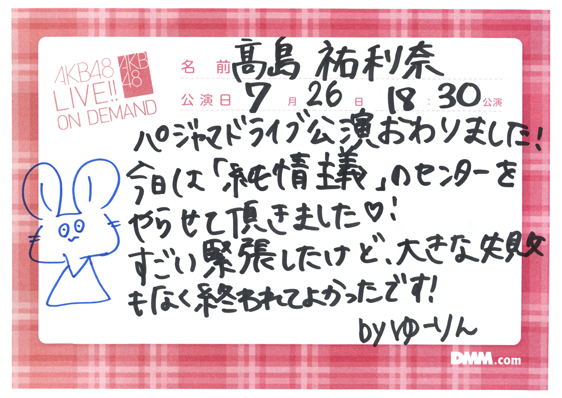 AKB48
LIVE!!
ON DEMAND
AKB
48
名前 髙島 祐利奈
公演日 7月26日 18:30公演
パジャマドライブ公演おわりました!
今日は「純情主義」のセンターを
やらせて頂きました♡!
すごい緊張したけど、大きな失敗
もなく終われてよかったです!
by ゆーりん
DMM.com